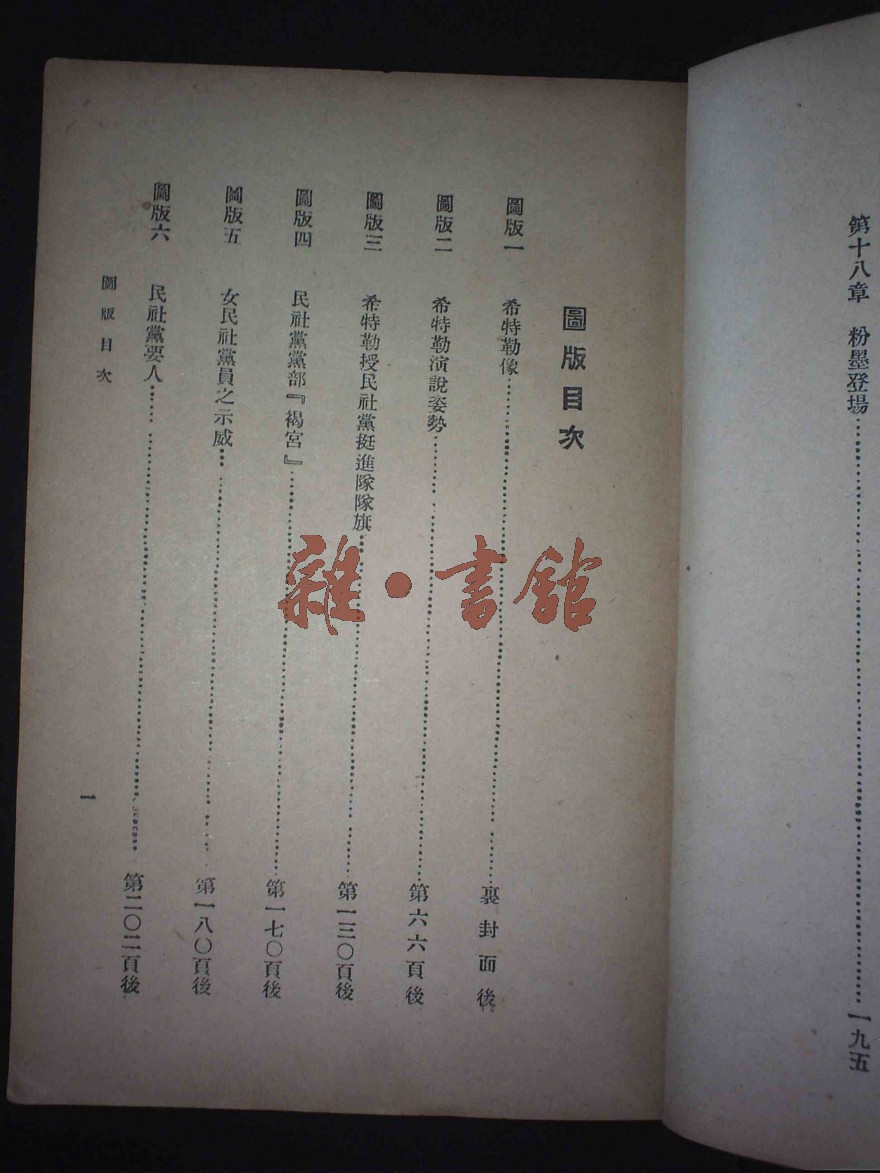 第十八章　粉墨登場……一九五
圖版目次
圖版一　希特勒像……裏封面後
圖版二　希特勒演說姿勢……第六六頁後
圖版三　希特勒授民社黨挺進隊隊旗……第一三〇頁後
圖版四　民社黨黨部『褐宮』……第一七〇頁後
圖版五　女民社黨員之示威……第一八〇頁後
圖版六　民社黨要人……第二〇二頁後
圖版目次
一
雜·書館